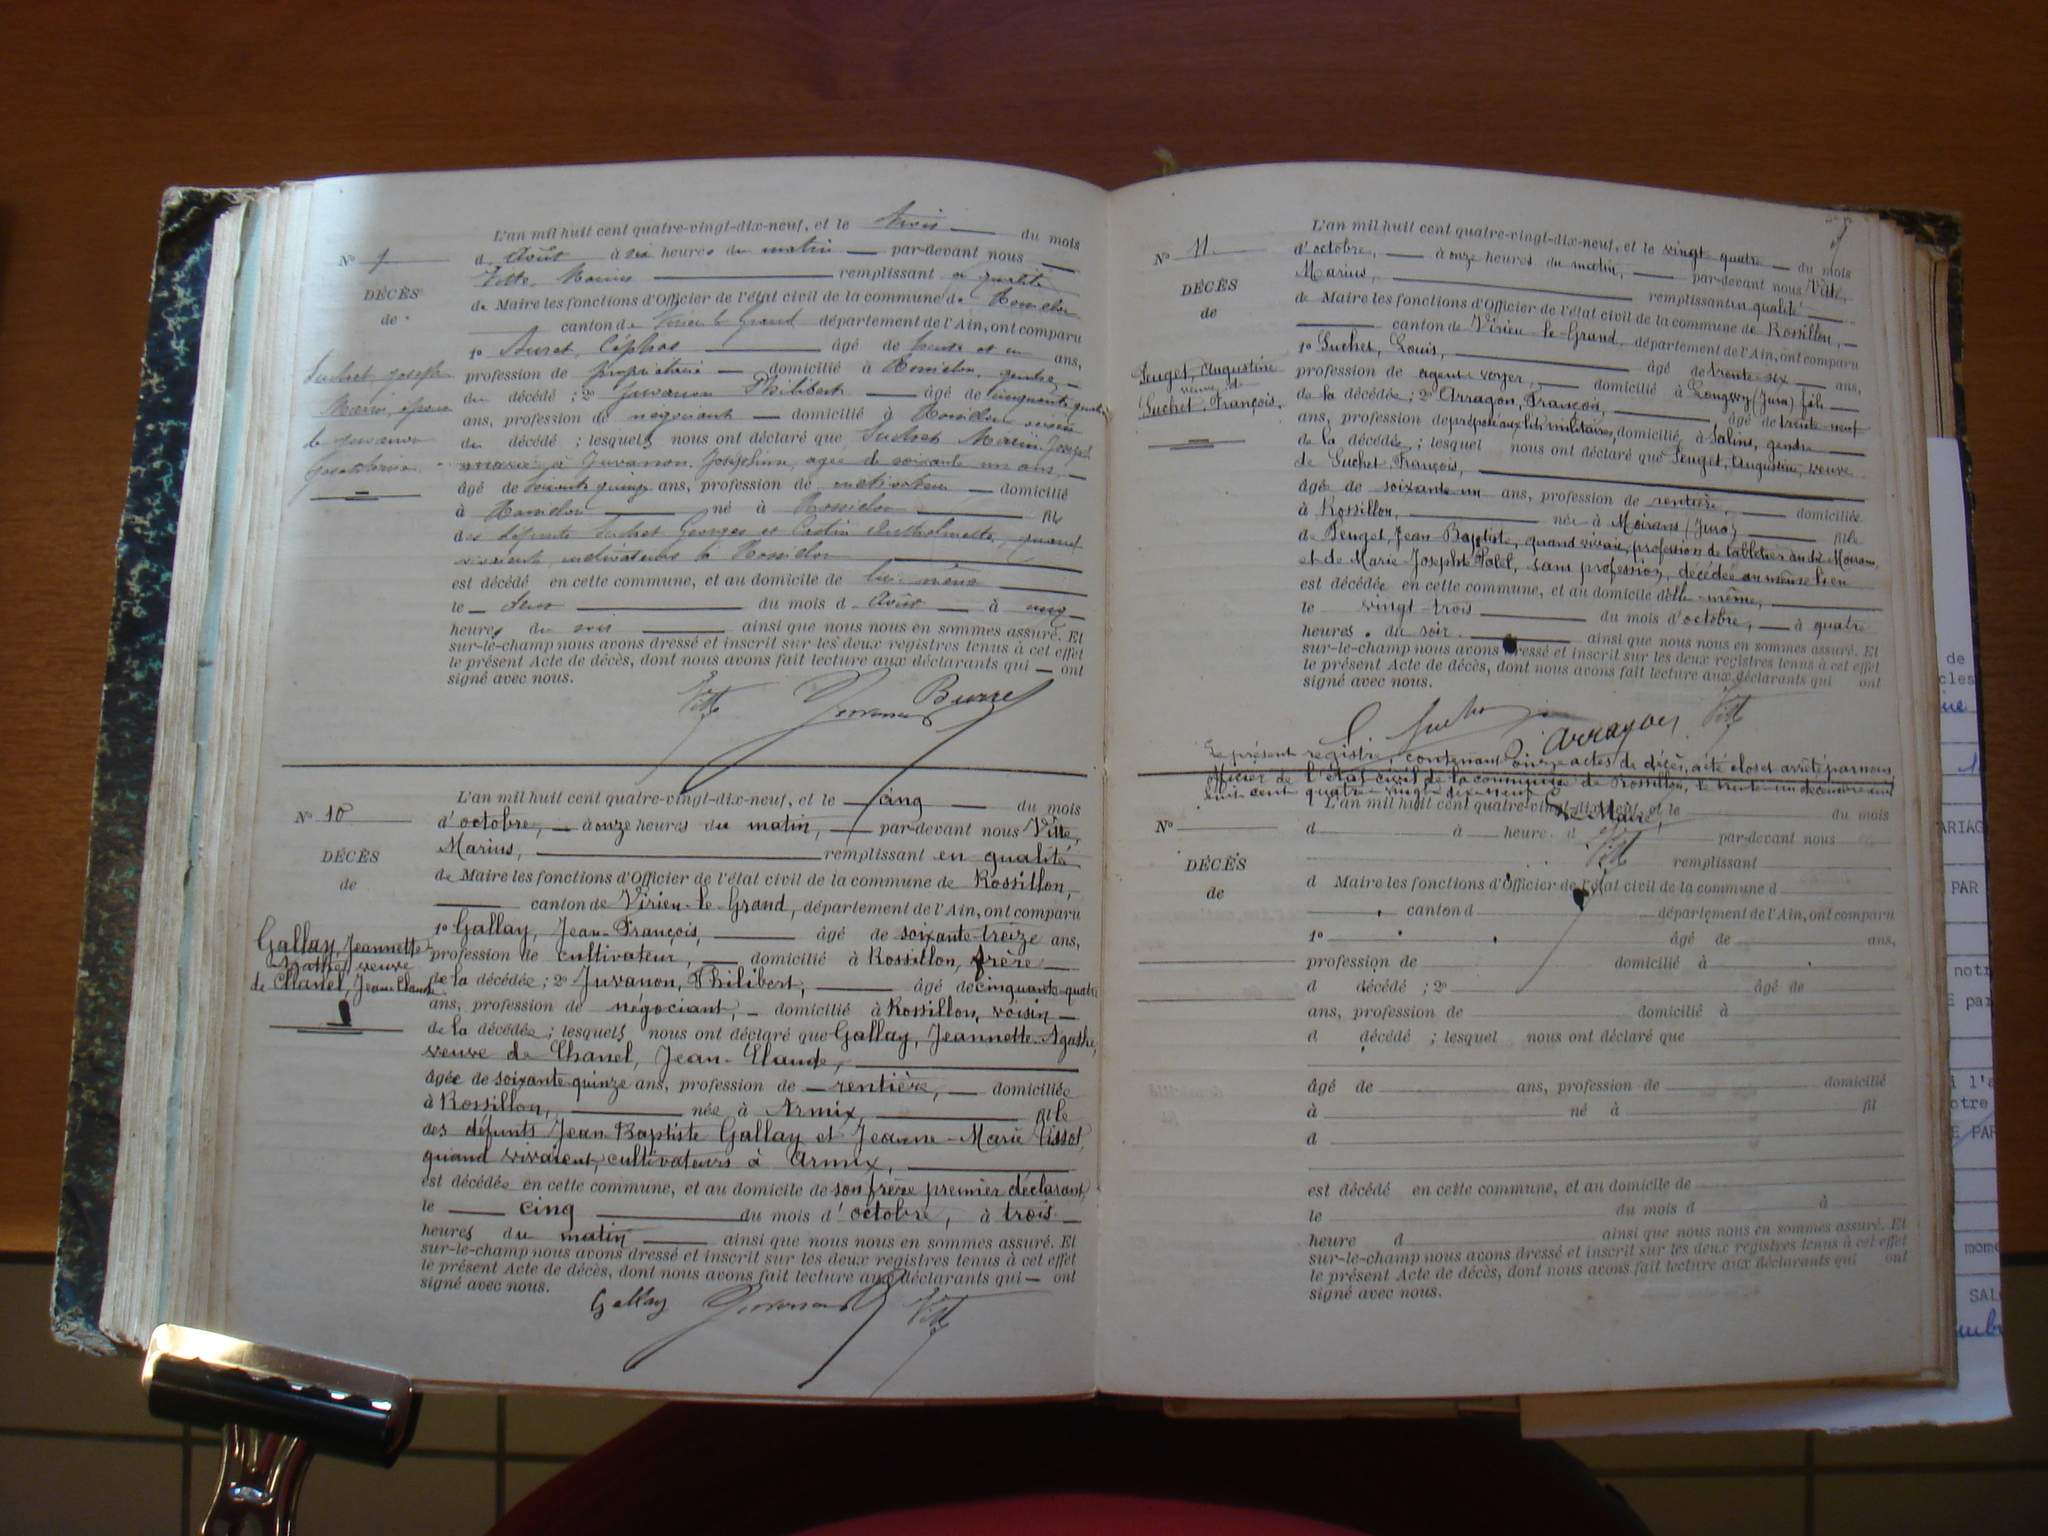 L'an mil huit cent quatre-vingt-dix-neuf, et le trois du mois
N° 9 d Août à six heures du matin par-devant nous
Vitte, Marius remplissant en qualité
DÉCÈS
de Maire les fonctions d'Officier de l'état civil de la commune de Rossillon
de
canton de Virieu le Grand département de l'Ain, ont comparu
1° Burret, Céphas âgé de trente et un ans,
Suchet Joseph
profession de propriétaire domicilié à Rossillon, gendre
Marin, époux
du décédé ; 2° Juvanon Philibert âgé de cinquante quatre
de Juvanon
ans, profession de négociant domicilié à Rossillon voisin
du décédé ; lesquels nous ont déclaré que Suchet Marin Joseph
marié à Juvanon Joséphine, agée de soixante un ans,
âgé de soixante quinze ans, profession de cultivateur domicilié
à Rossillon né à Rossillon fils
des défunts Suchet Georges et quand
vivaient cultivateurs à Rossillon
est décédé en cette commune, et au domicile de lui-même
le deux du mois d Août à cinq
heures du soir ainsi que nous nous en sommes assuré. Et
sur-le-champ nous avons dressé et inscrit sur les deux registres tenus à cet effet
le présent Acte de décès, dont nous avons fait lecture aux déclarants qui ont
signé avec nous.
Vitte Juvanon Burret
L'an mil huit cent quatre-vingt-dix-neuf, et le cinq du mois
N° 10 d'octobre, à onze heures du matin, par-devant nous Vitte,
Marius, remplissant en qualité
DÉCÈS
de Maire les fonctions d'Officier de l'état civil de la commune de Rossillon,
de
canton de Virieu-le-Grand, département de l'Ain, ont comparu
1° Gallay, Jean-François, âgé de soixante-treize ans,
Gallay, Jeannette-
Agathe, veuve
de Chanel, Jean-Claude
profession de cultivateur, domicilié à Rossillon, frère
de la décédée ; 2° Juvanon, Philibert, âgé de cinquante-quatre
ans, profession de négociant, domicilié à Rossillon, voisin
de la décédée ; lesquels nous ont déclaré que Gallay, Jeannette-Agathe,
veuve de Chanel, Jean-Claude,
âgée de soixante-quinze ans, profession de rentière, domiciliée
à Rossillon, née à Armix, fille
des défunts Jean-Baptiste Gallay et Jeanne-Marie Tissot,
quand vivaient, cultivateurs à Armix,
est décédée en cette commune, et au domicile de son frère premier déclarant,
le cinq du mois d'octobre, à trois
heures du matin ainsi que nous nous en sommes assuré. Et
sur-le-champ nous avons dressé et inscrit sur les deux registres tenus à cet effet
le présent Acte de décès, dont nous avons fait lecture aux déclarants qui ont
signé avec nous.
Gallay Juvanon Vitte
L'an mil huit cent quatre-vingt-dix-neuf, et le vingt quatre du mois
N° 11 d'octobre, à onze heures du matin, par-devant nous Vitte,
Marius, remplissant en qualité
DÉCÈS
de Maire les fonctions d'Officier de l'état civil de la commune de Rossillon,
de
canton de Virieu-le-Grand, département de l'Ain, ont comparu
1° Suchet, Louis, âgé de trente-six ans,
Peuget, Augustine
veuve de
Suchet, François.
profession de agent-voyer, domicilié à Longwy (Jura) fils
de la décédée ; 2° Arragon, François, âgé de trente-neuf
ans, profession de préposé aux lits militaires, domicilié à Salins, gendre
de la décédée ; lesquel nous ont déclaré que Peuget, Augustine, veuve
de Suchet François,
âgée de soixante-un ans, profession de rentière, domiciliée
à Rossillon, née à Moirans (Jura) fille
de Peuget, Jean-Baptiste, quand vivait, profession de tabletier audit Moirans,
et de Marie Josephte sans profession, décédée au même lieu
est décédée en cette commune, et au domicile d'elle-même,
le vingt-trois du mois d'octobre, à quatre
heures du soir. ainsi que nous nous en sommes assuré. Et
sur-le-champ nous avons dressé et inscrit sur les deux registres tenus à cet effet
le présent Acte de décès, dont nous avons fait lecture aux déclarants qui ont
signé avec nous.
L. Suchet Arragon Vitte
Le présent registre, contenant onze actes de décès, a été clos et arrêté par nous
officier de l'état civil de la commune de Rossillon, le trente-un décembre mil
huit cent quatre-vingt-dix-neuf
Le Maire,
Vitte
L'an mil huit cent quatre-vingt-dix-neuf, et le du mois
N° d à heure d par-devant nous
remplissant
DÉCÈS
d Maire les fonctions d'Officier de l'état civil de la commune d
de
canton d département de l'Ain, ont comparu
1° âgé de ans,
profession de domicilié à
d décédé ; 2° âgé de
ans, profession de domicilié à
d décédé ; lesquel nous ont déclaré que
âgé de ans, profession de domicilié
à né à fil
d
est décédé en cette commune, et au domicile de
le du mois d à
heure d ainsi que nous nous en sommes assuré. Et
sur-le-champ nous avons dressé et inscrit sur les deux registres tenus à cet effet
le présent Acte de décès, dont nous avons fait lecture aux déclarants qui ont
signé avec nous.